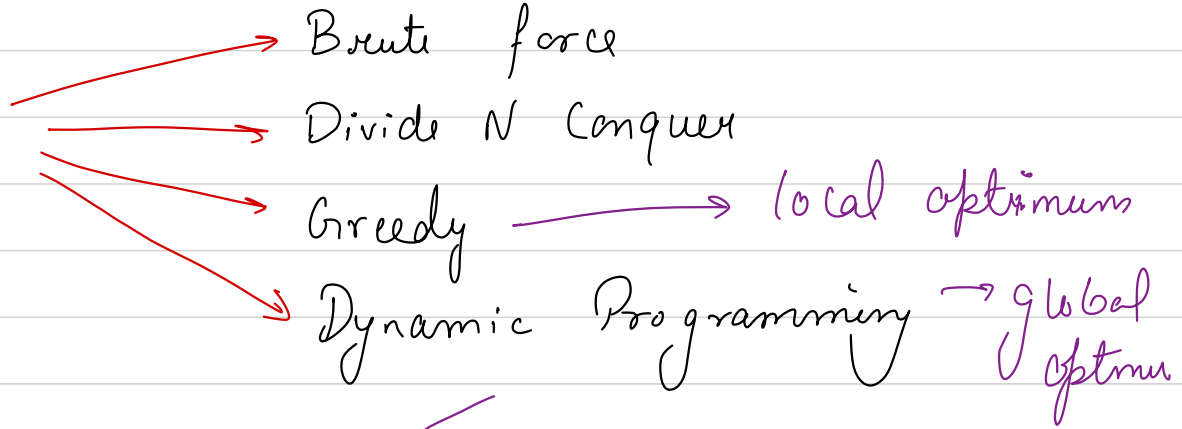 Brute force
Divide N Conquer
Greedy → local optimum
Dynamic Programming → global
optmu